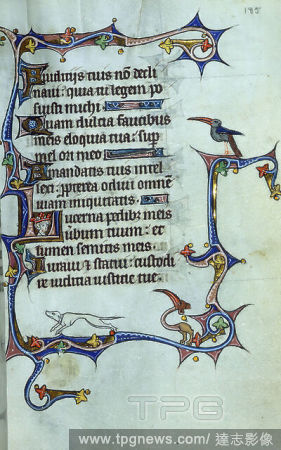 185
A iudicijs tuis nō decli
naui: quia tu legem po
suisti michi.
Quam dulcia faucibus
meis eloquia tua: sup
mel ori meo
A mandatis tuis intel
lexi: ppterea odiui omnē
uiam iniquitatis.
Lucerna pedib; meis
uerbum tuum: et
lumen semitis meis.
Iuraui & statui: custodi
re iudicia iusticie tue.
TPG
www.tpgnews.com/ 達志影像